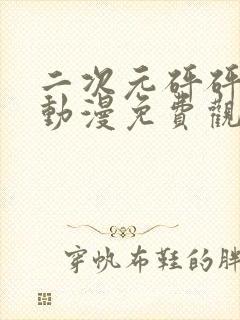 二次元砰砰
動漫免費觀
穿帆布鞋的胖